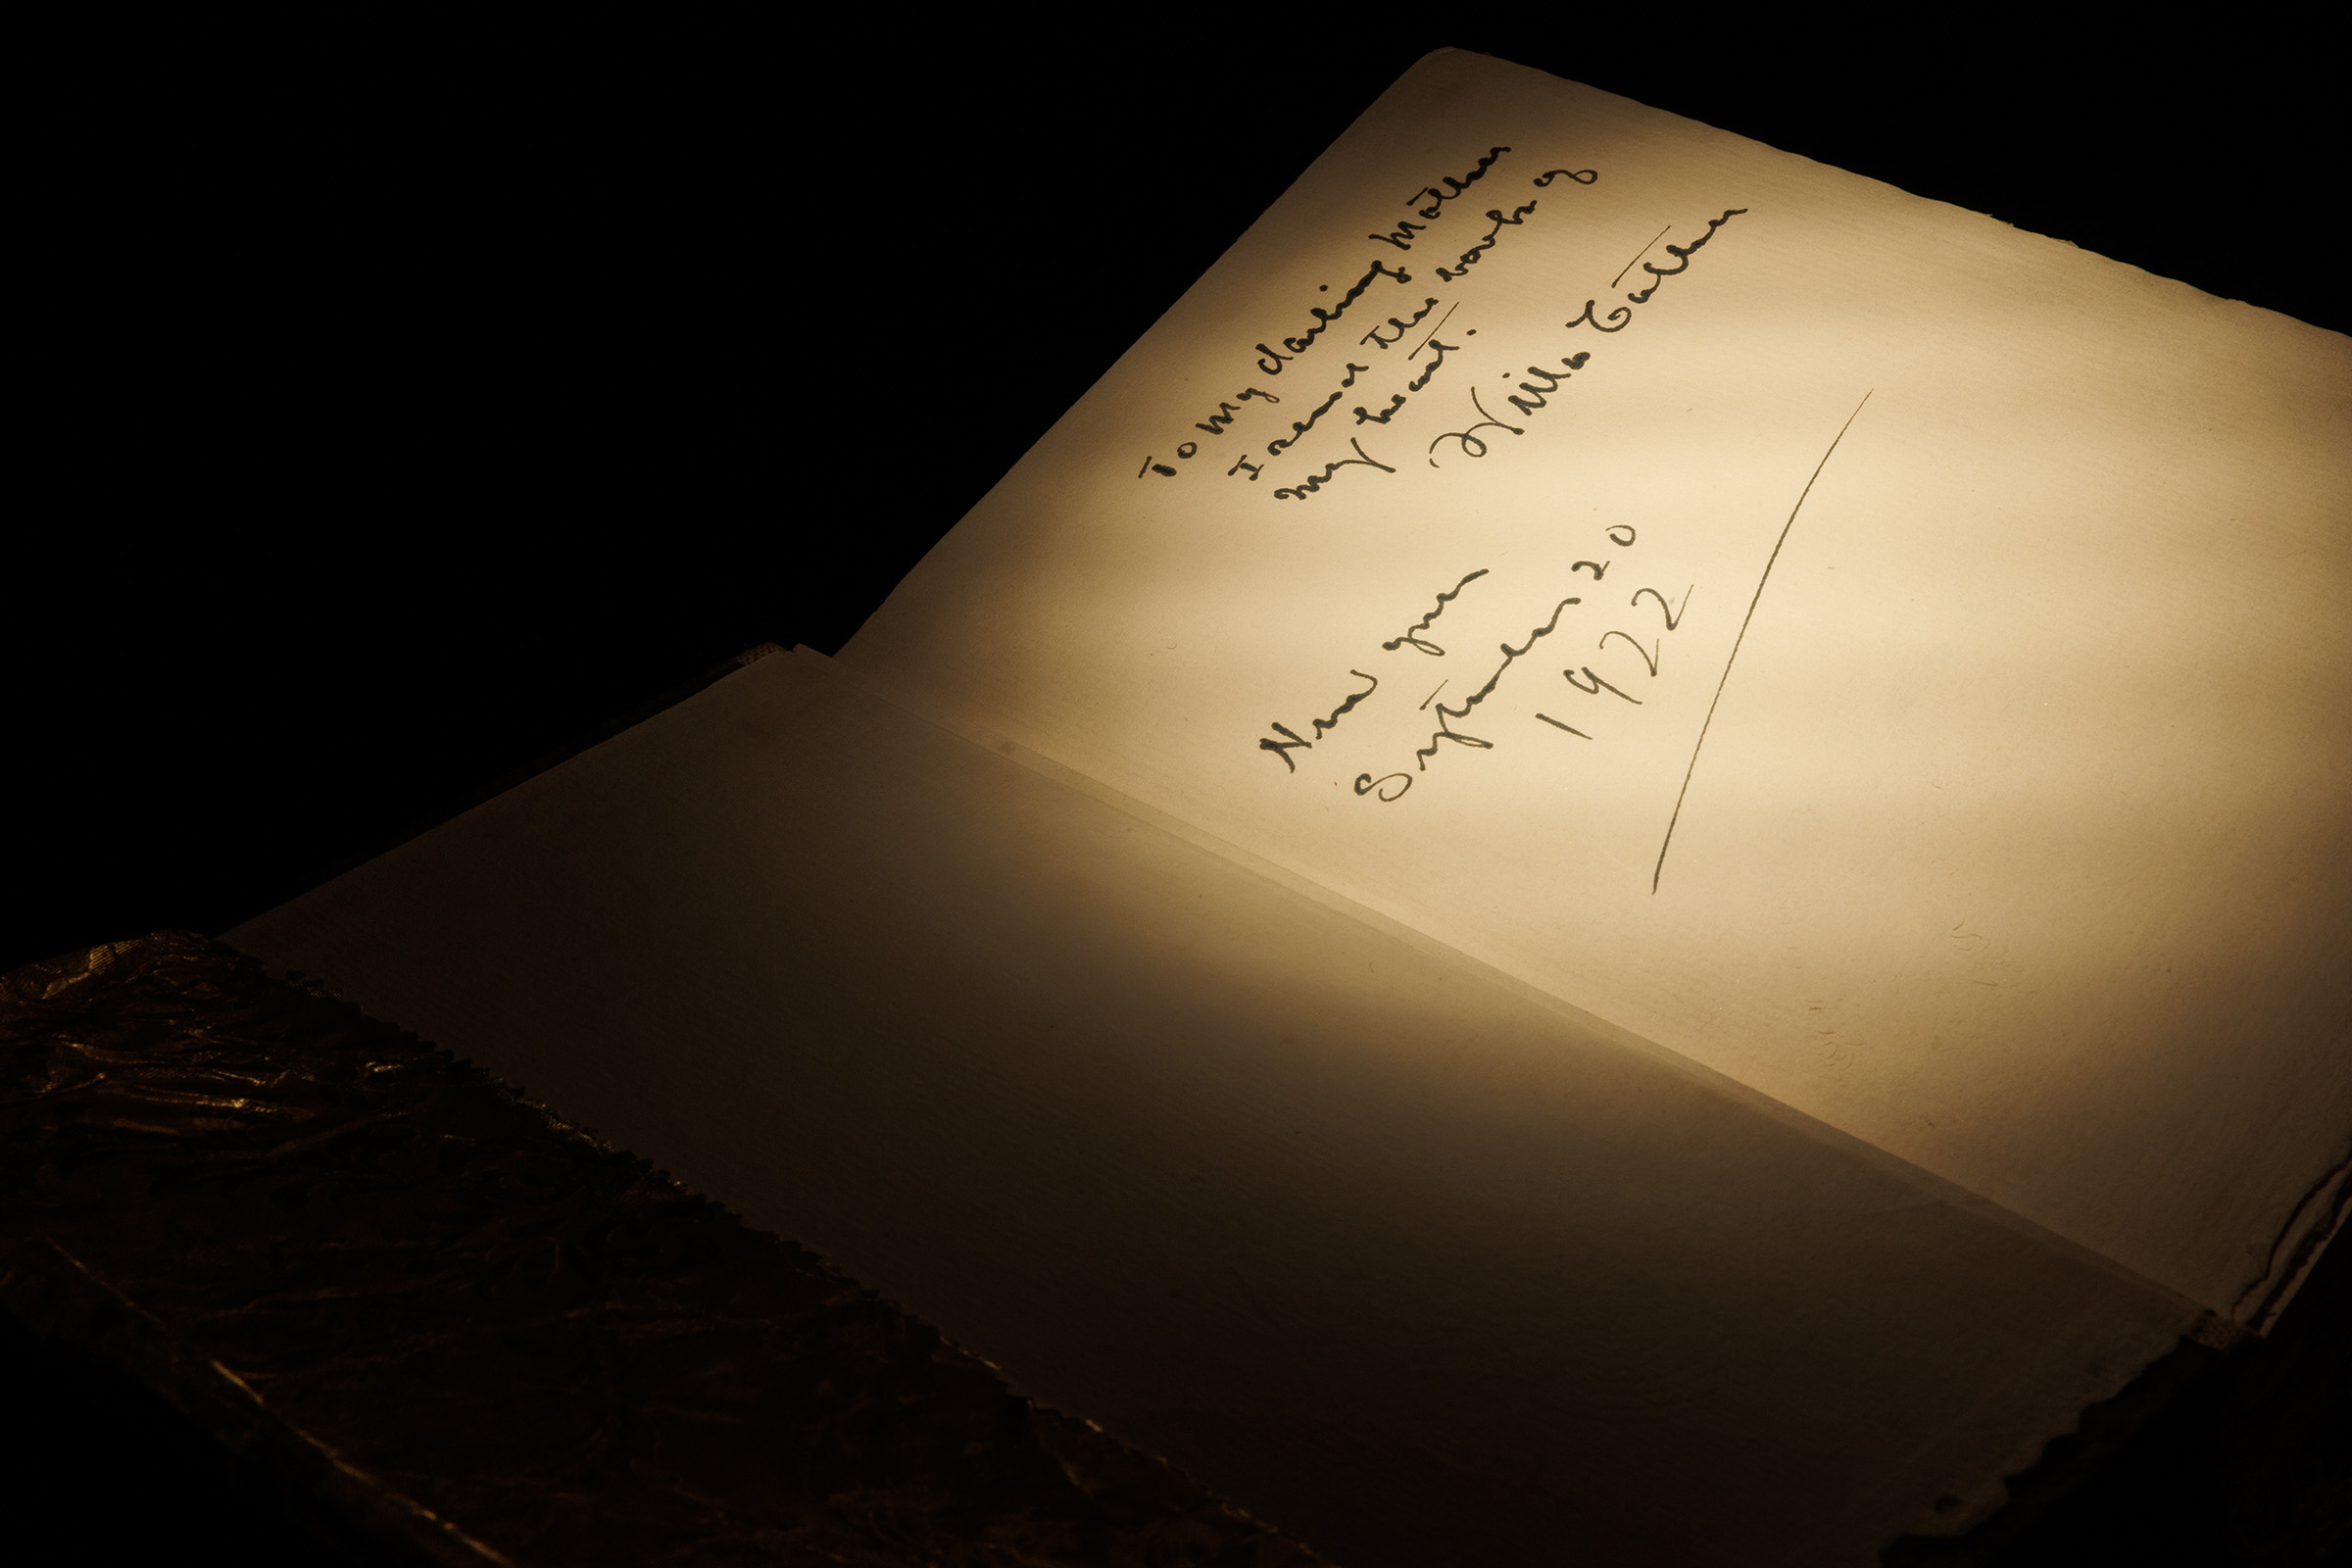 To my darling Mother
I send this book of
my heart.
Willa Cather
New York
September 20
1922